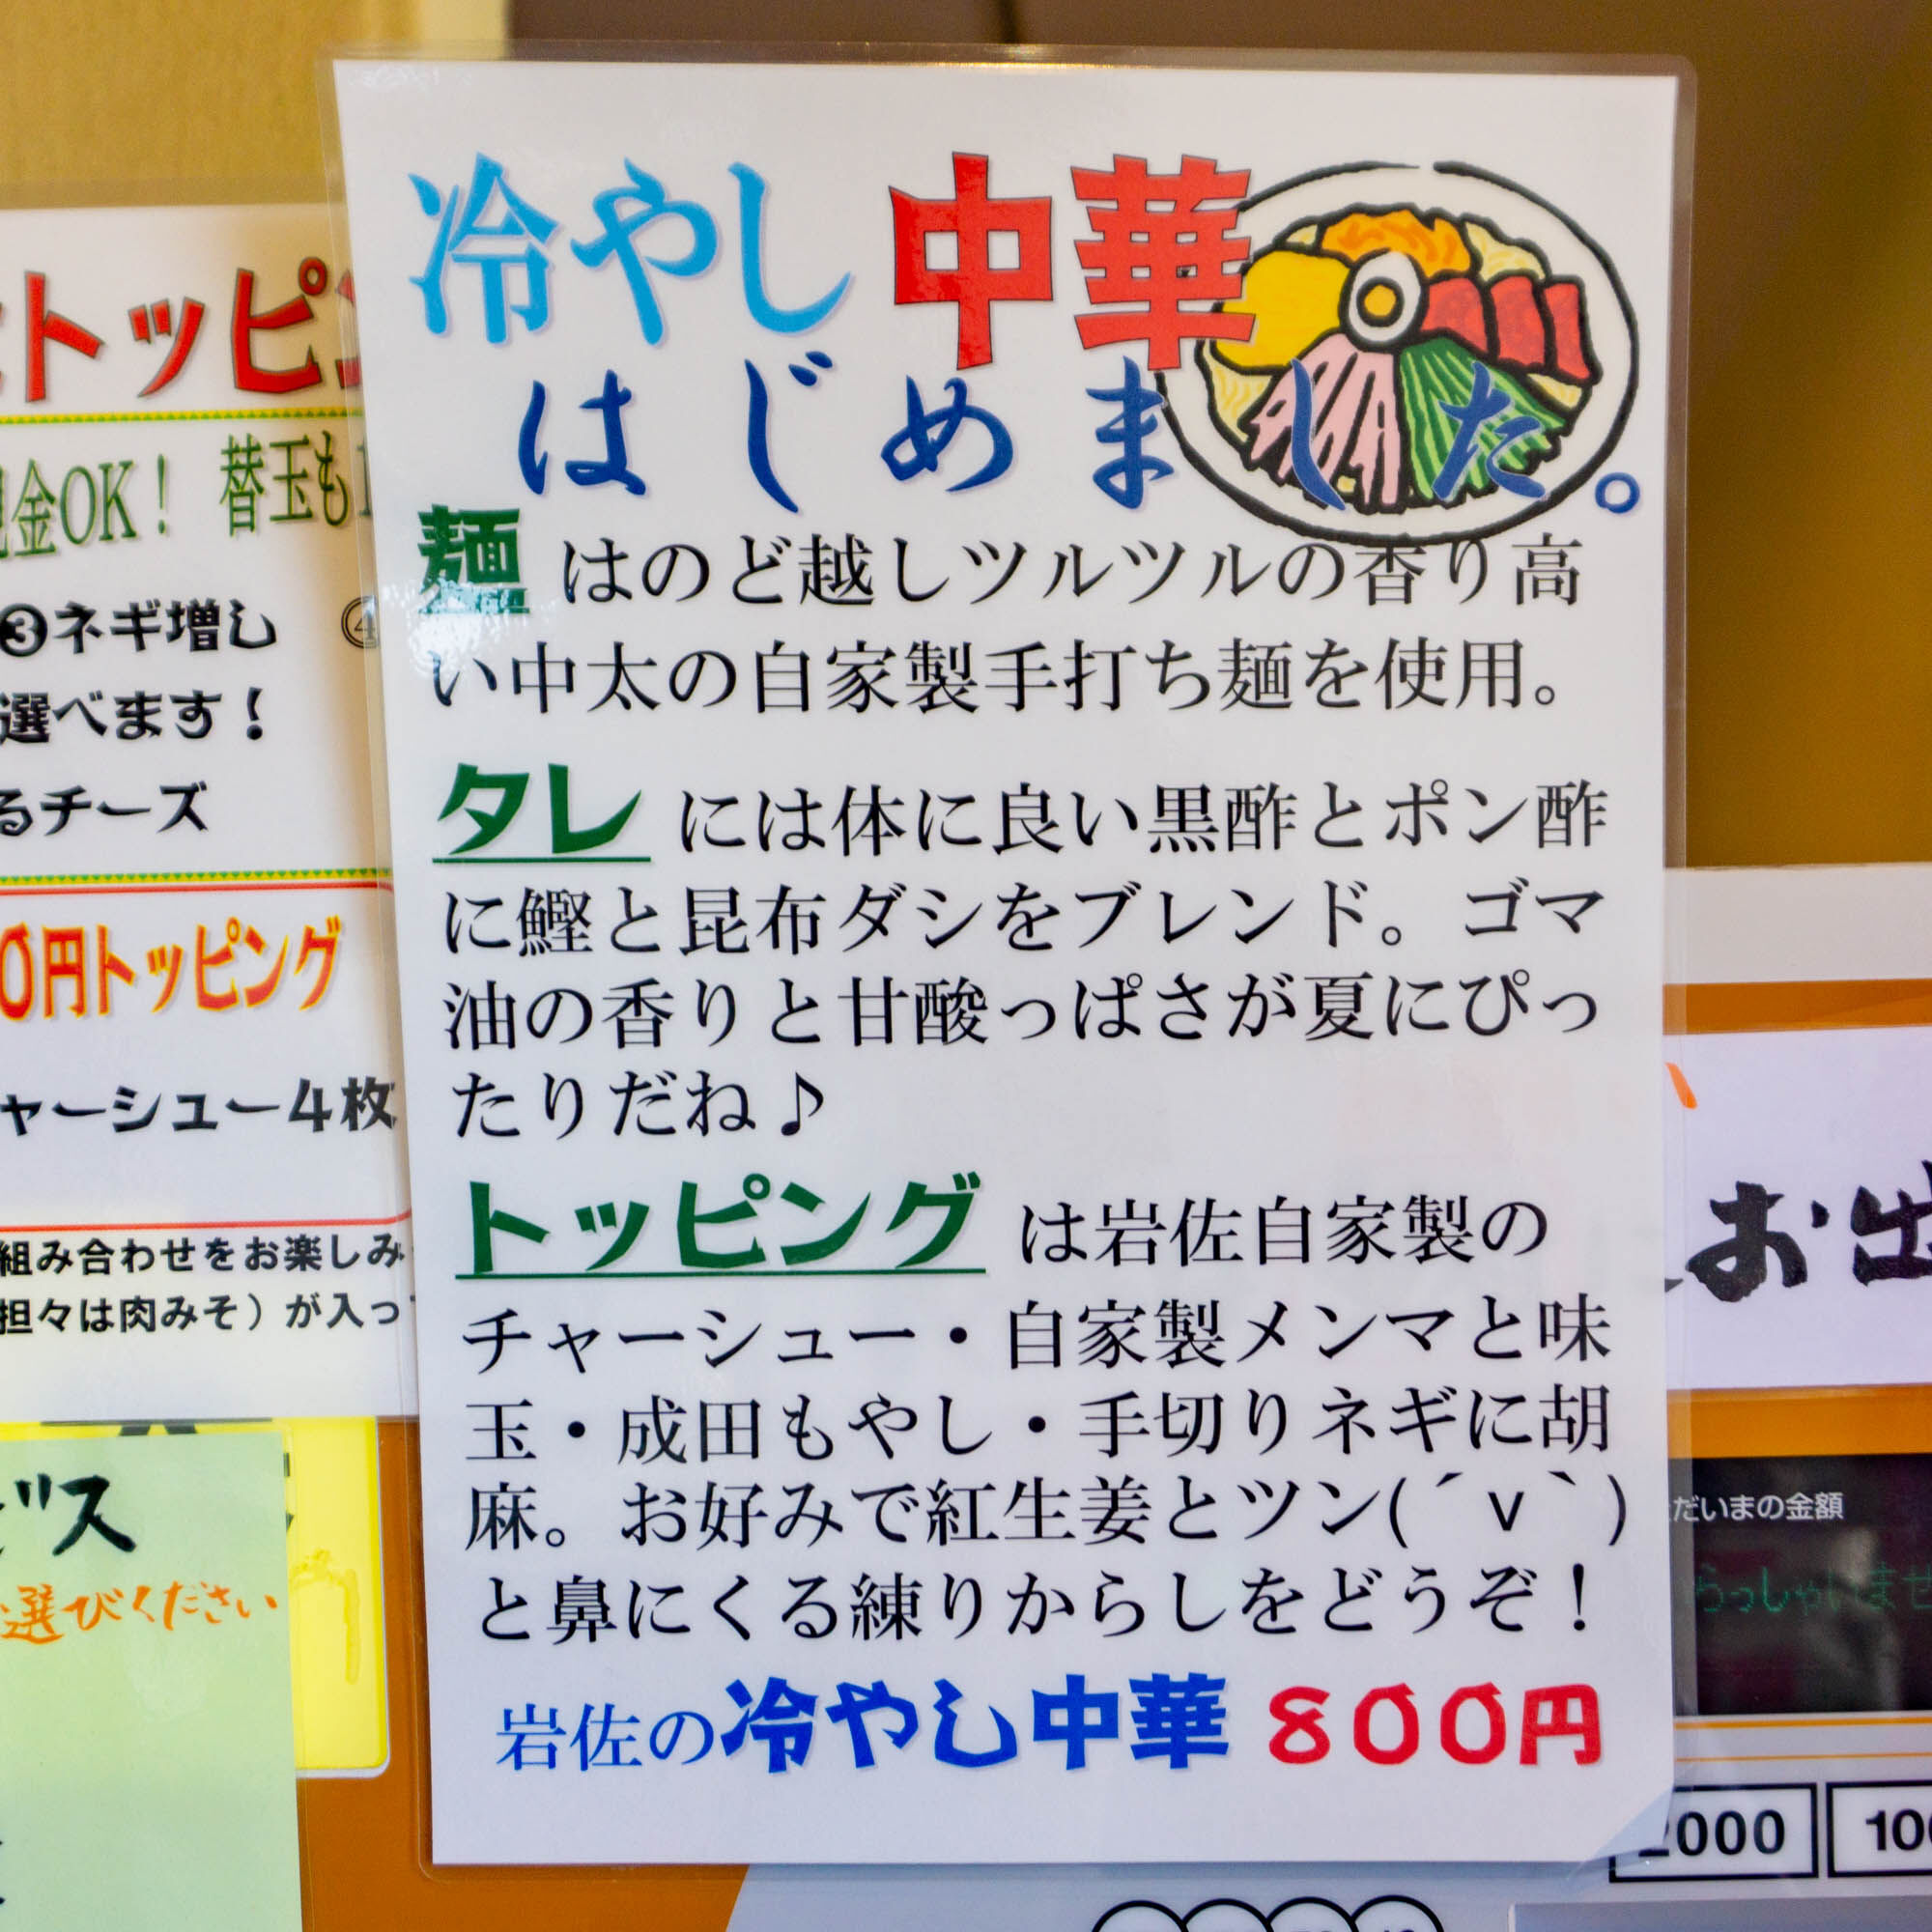 冷やし中華
はじめました。
麺はのど越しツルツルの香り高
い中太の自家製手打ち麺を使用。
タレには体に良い黒酢とポン酢
に鰹と昆布ダシをブレンド。ゴマ
油の香りと甘酸っぱさが夏にぴっ
たりだね♪
トッピングは岩佐自家製の
チャーシュー・自家製メンマと味
玉・成田もやし・手切りネギに胡
麻。お好みで紅生姜とツン(´ｖ｀)
と鼻にくる練りからしをどうぞ！
岩佐の冷やし中華 800円
トッピ
金OK！ 替玉も1
❸ネギ増し ④
選べます！
るチーズ
0円トッピング
ャーシュー4枚
組み合わせをお楽しみ
担々は肉みそ）が入っ
ビス
選びください
お出
だいまの金額
らっしゃいませ
2000
100